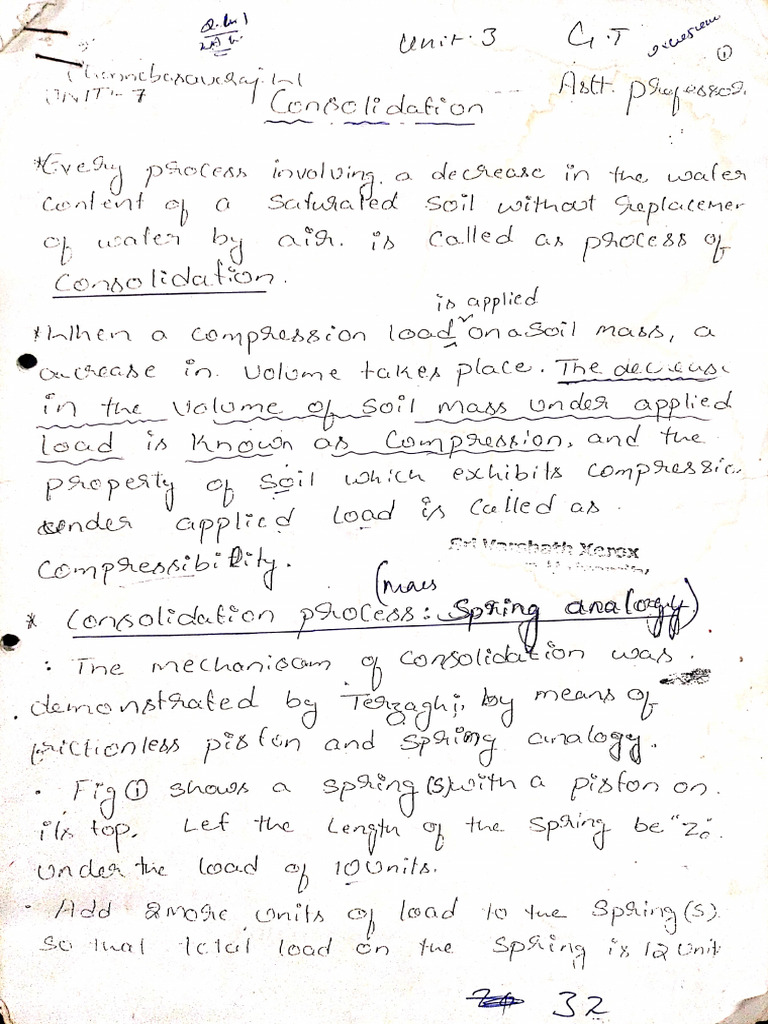 Unit. 3 G.T
①
UNIT-7 Asst. professor.
Consolidation
*Every process involving a decrease in the water
content of a saturated soil without replacemen
of water by air. is called as process of
Consolidation.
is applied
*When a compression load on a soil mass, a
decrease in volume takes place. The decrease
in the volume of soil mass under applied
load is known as compression, and the
property of soil which exhibits compressio
under applied load is called as
compressibility.
Xerox
* Consolidation process: (Mass Spring analogy)
: The mechanisam of consolidation was
demonstrated by Terzaghi, by means of
frictionless piston and spring analogy.
. Fig ① shows a spring(s) with a piston on
its top. Let the length of the spring be "Z₀"
under the load of 10 units.
. Add 2 more units of load to the spring(s)
so that total load on the spring is 12 unit
32